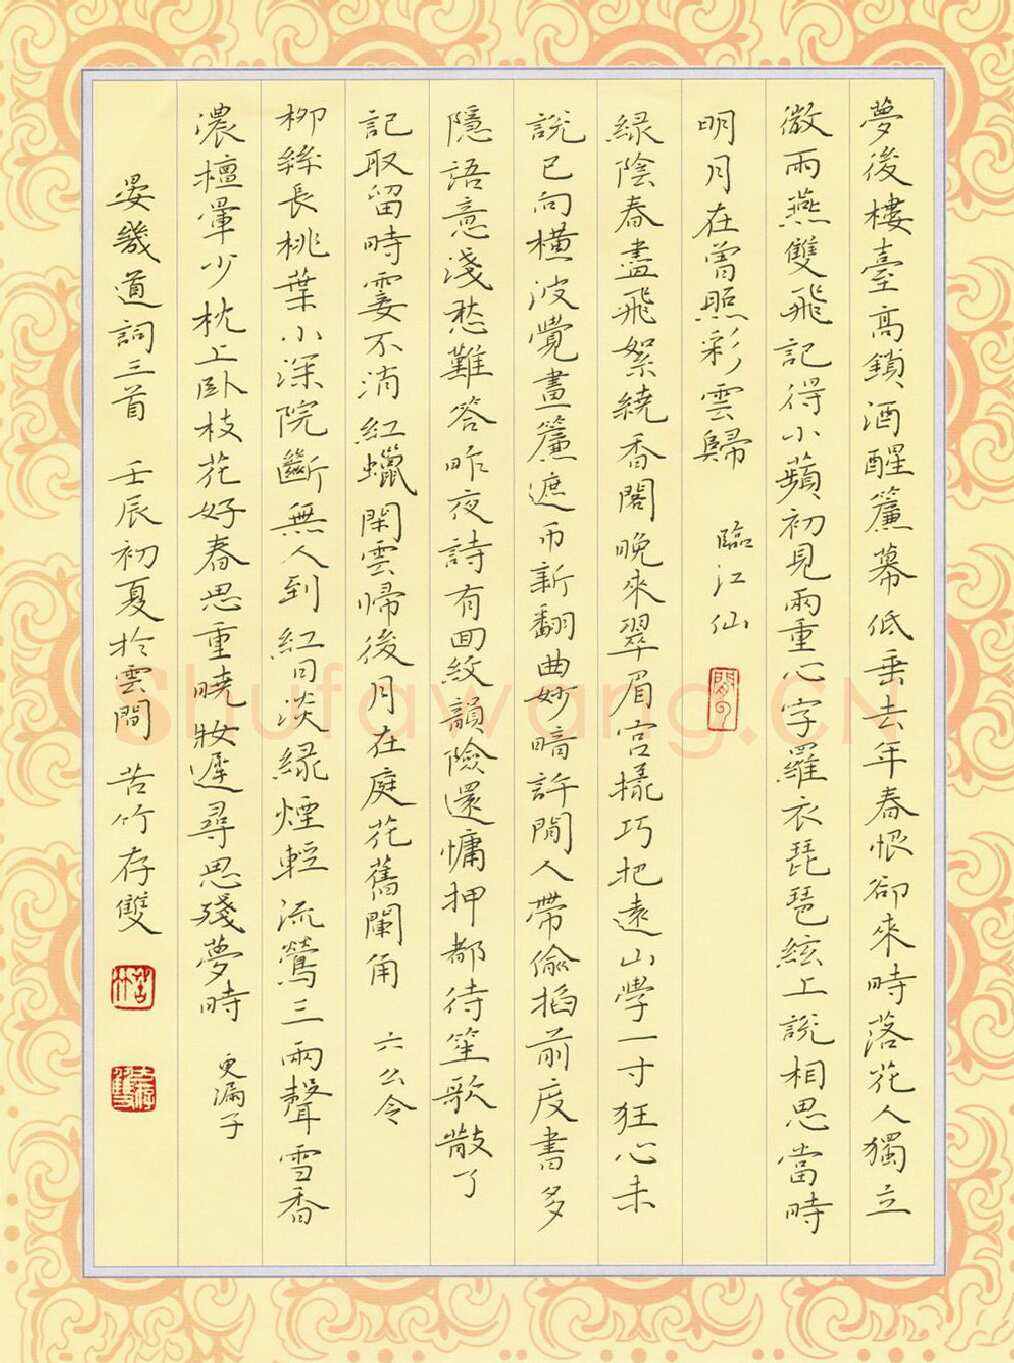 夢後樓臺高鎖酒醒簾幕低垂去年春恨卻來時落花人獨立
微雨燕雙飛記得小蘋初見兩重心字羅衣琵琶絃上說相思當時
明月在曾照彩雲歸 臨江仙
綠陰春盡飛絮繞香閣晚來翠眉宮樣巧把遠山學一寸狂心未
說已向橫波覺畫簾遮帀新翻曲妙暗許閒人帶偷掐前度書多
隱語意淺愁難答昨夜詩有回紋韻險還慵押都待笙歌散了
記取留時霎不消紅蠟閑雲歸後月在庭花舊闌角 六么令
柳絲長桃葉小深院斷無人到紅日淡綠煙輕流鶯三兩聲雪香
濃檀暈少枕上臥枝花好春思重曉妝遲尋思殘夢時 更漏子
晏幾道詞三首 壬辰初夏於雲間 苦竹存雙
苦竹
Shufawang.CN